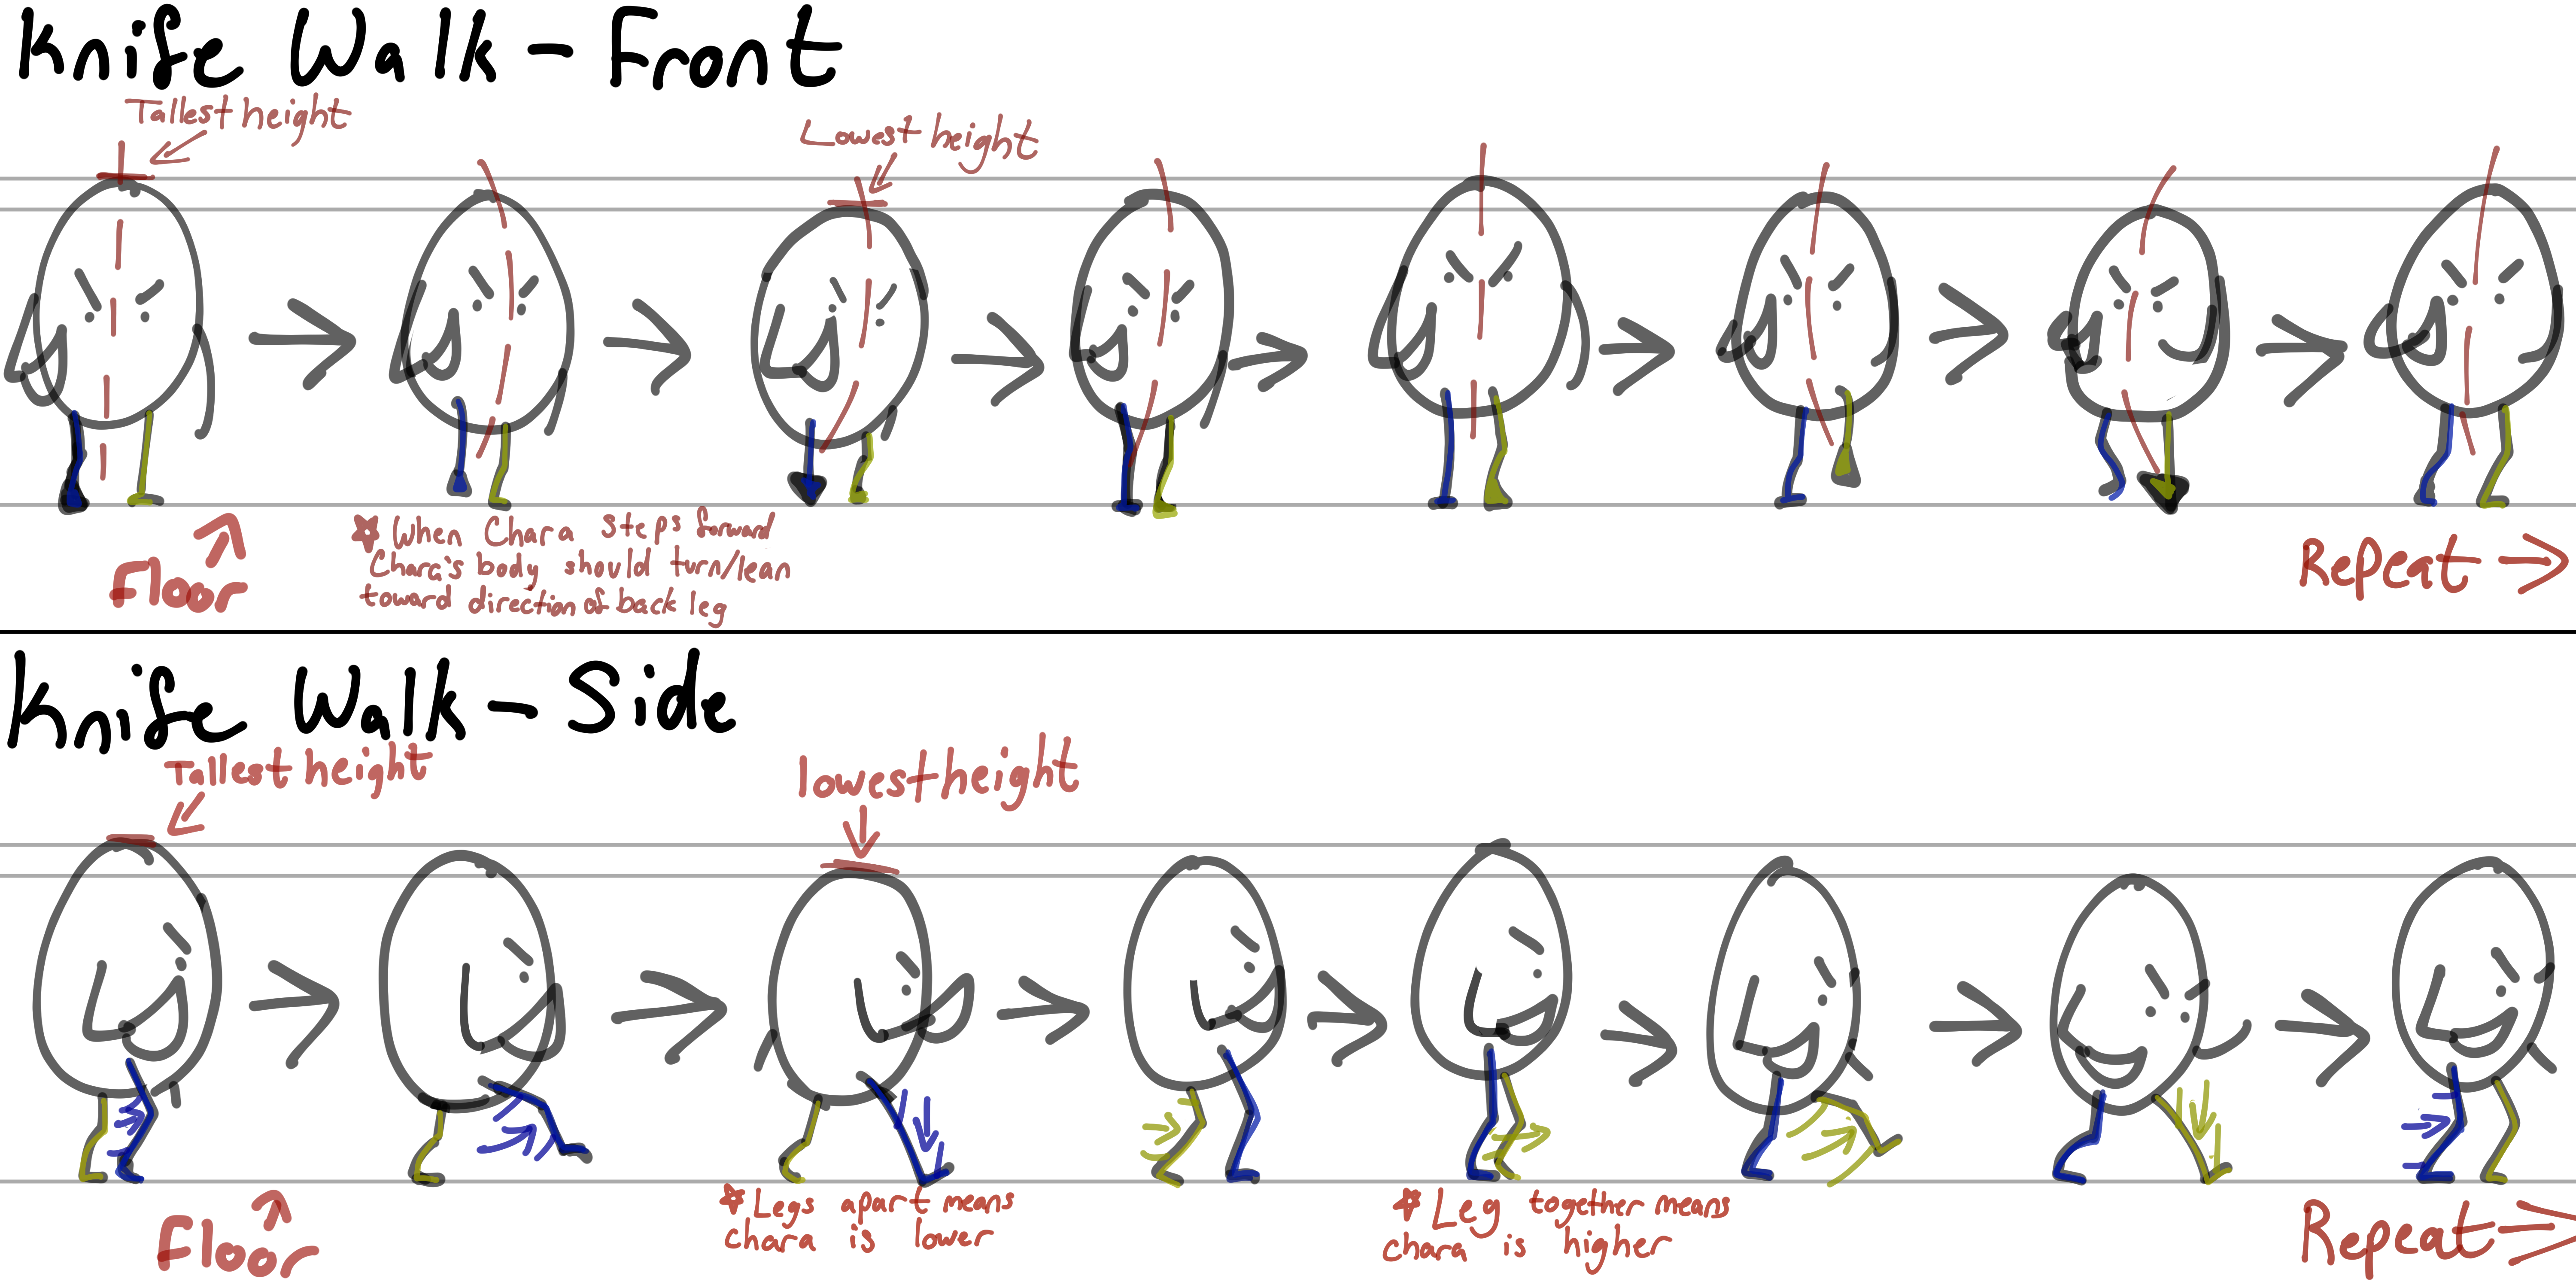 Knife Walk - Front
Tallest height
Lowest height
Floor
When Chara steps forward
Chara's body should turn/lean
toward direction of back leg
Repeat
Knife Walk - Side
Tallest height
lowest height
Floor
Legs apart means
chara is lower
Leg together means
chara is higher
Repeat